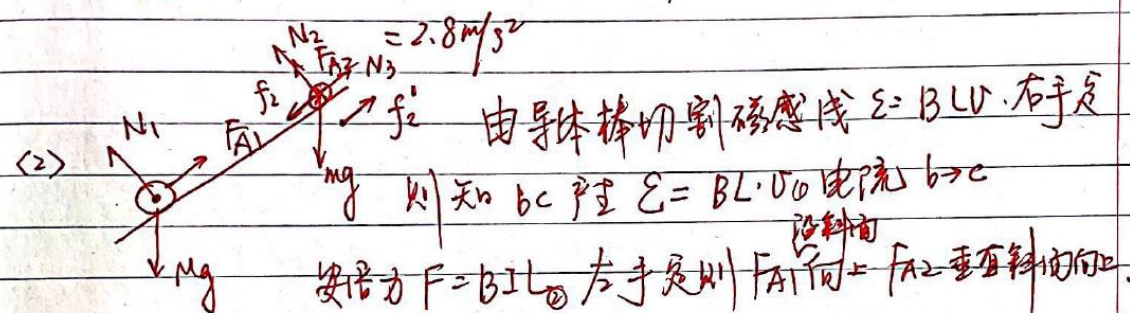 = 2.8m/s²
N₂
F_A2 N₃
f₂
f₂'
N₁
F_A1
mg
Mg
由导体棒切割磁感线 ε=BLv.右手定
<2>
则知 bc 产生 ε=BL·v₀ 电流 b→c
沿斜面
安培力 F=BIL② 左手定则 F_A1 向上 F_A2 垂直斜面向上.